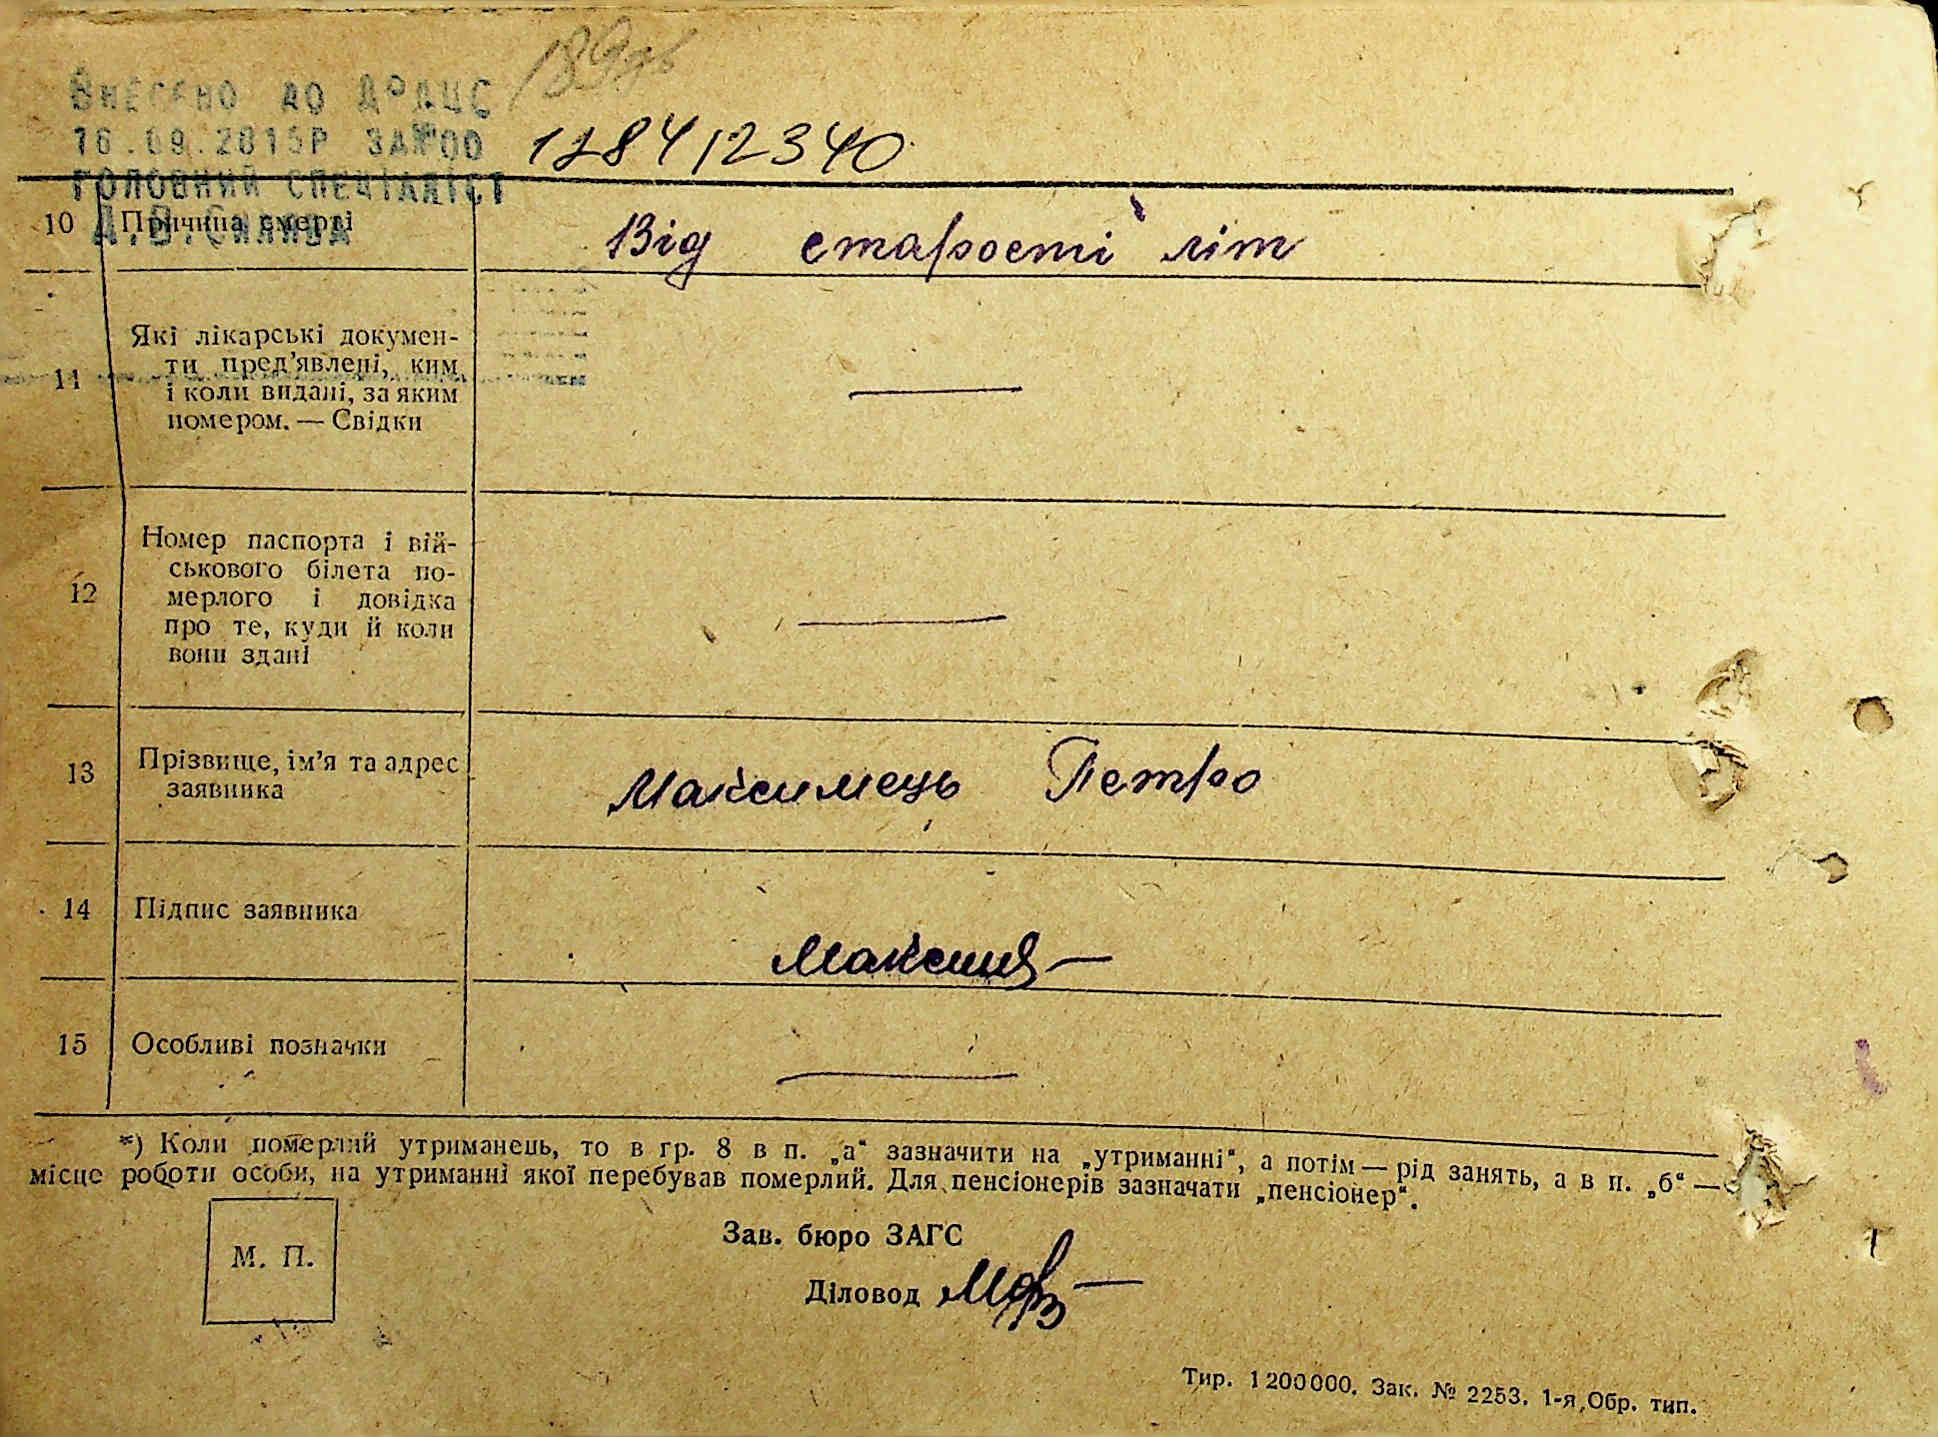 ВНЕСЕНО ДО ДРАЦС
16.09.2015Р ЗА №00
128412340
ГОЛОВНИЙ СПЕЦІАЛІСТ
10 Причина смерті Від старості літ
11 Які лікарські докумен-
ти пред’явлені, ким
і коли видані, за яким
номером. — Свідки —
12 Номер паспорта і вій-
ськового білета по-
мерлого і довідка
про те, куди й коли
вони здані —
13 Прізвище, ім’я та адрес Максимець Петро
заявника
14 Підпис заявника
15 Особливі позначки —
*) Коли померлий утриманець, то в гр. 8 в п. „а“ зазначити на „утриманні“, а потім — рід занять, а в п. „б“ —
місце роботи особи, на утриманні якої перебував померлий. Для пенсіонерів зазначати „пенсіонер“.
М. П.
Зав. бюро ЗАГС
Діловод
Тир. 1 200 000. Зак. № 2253. 1-я Обр. тип.